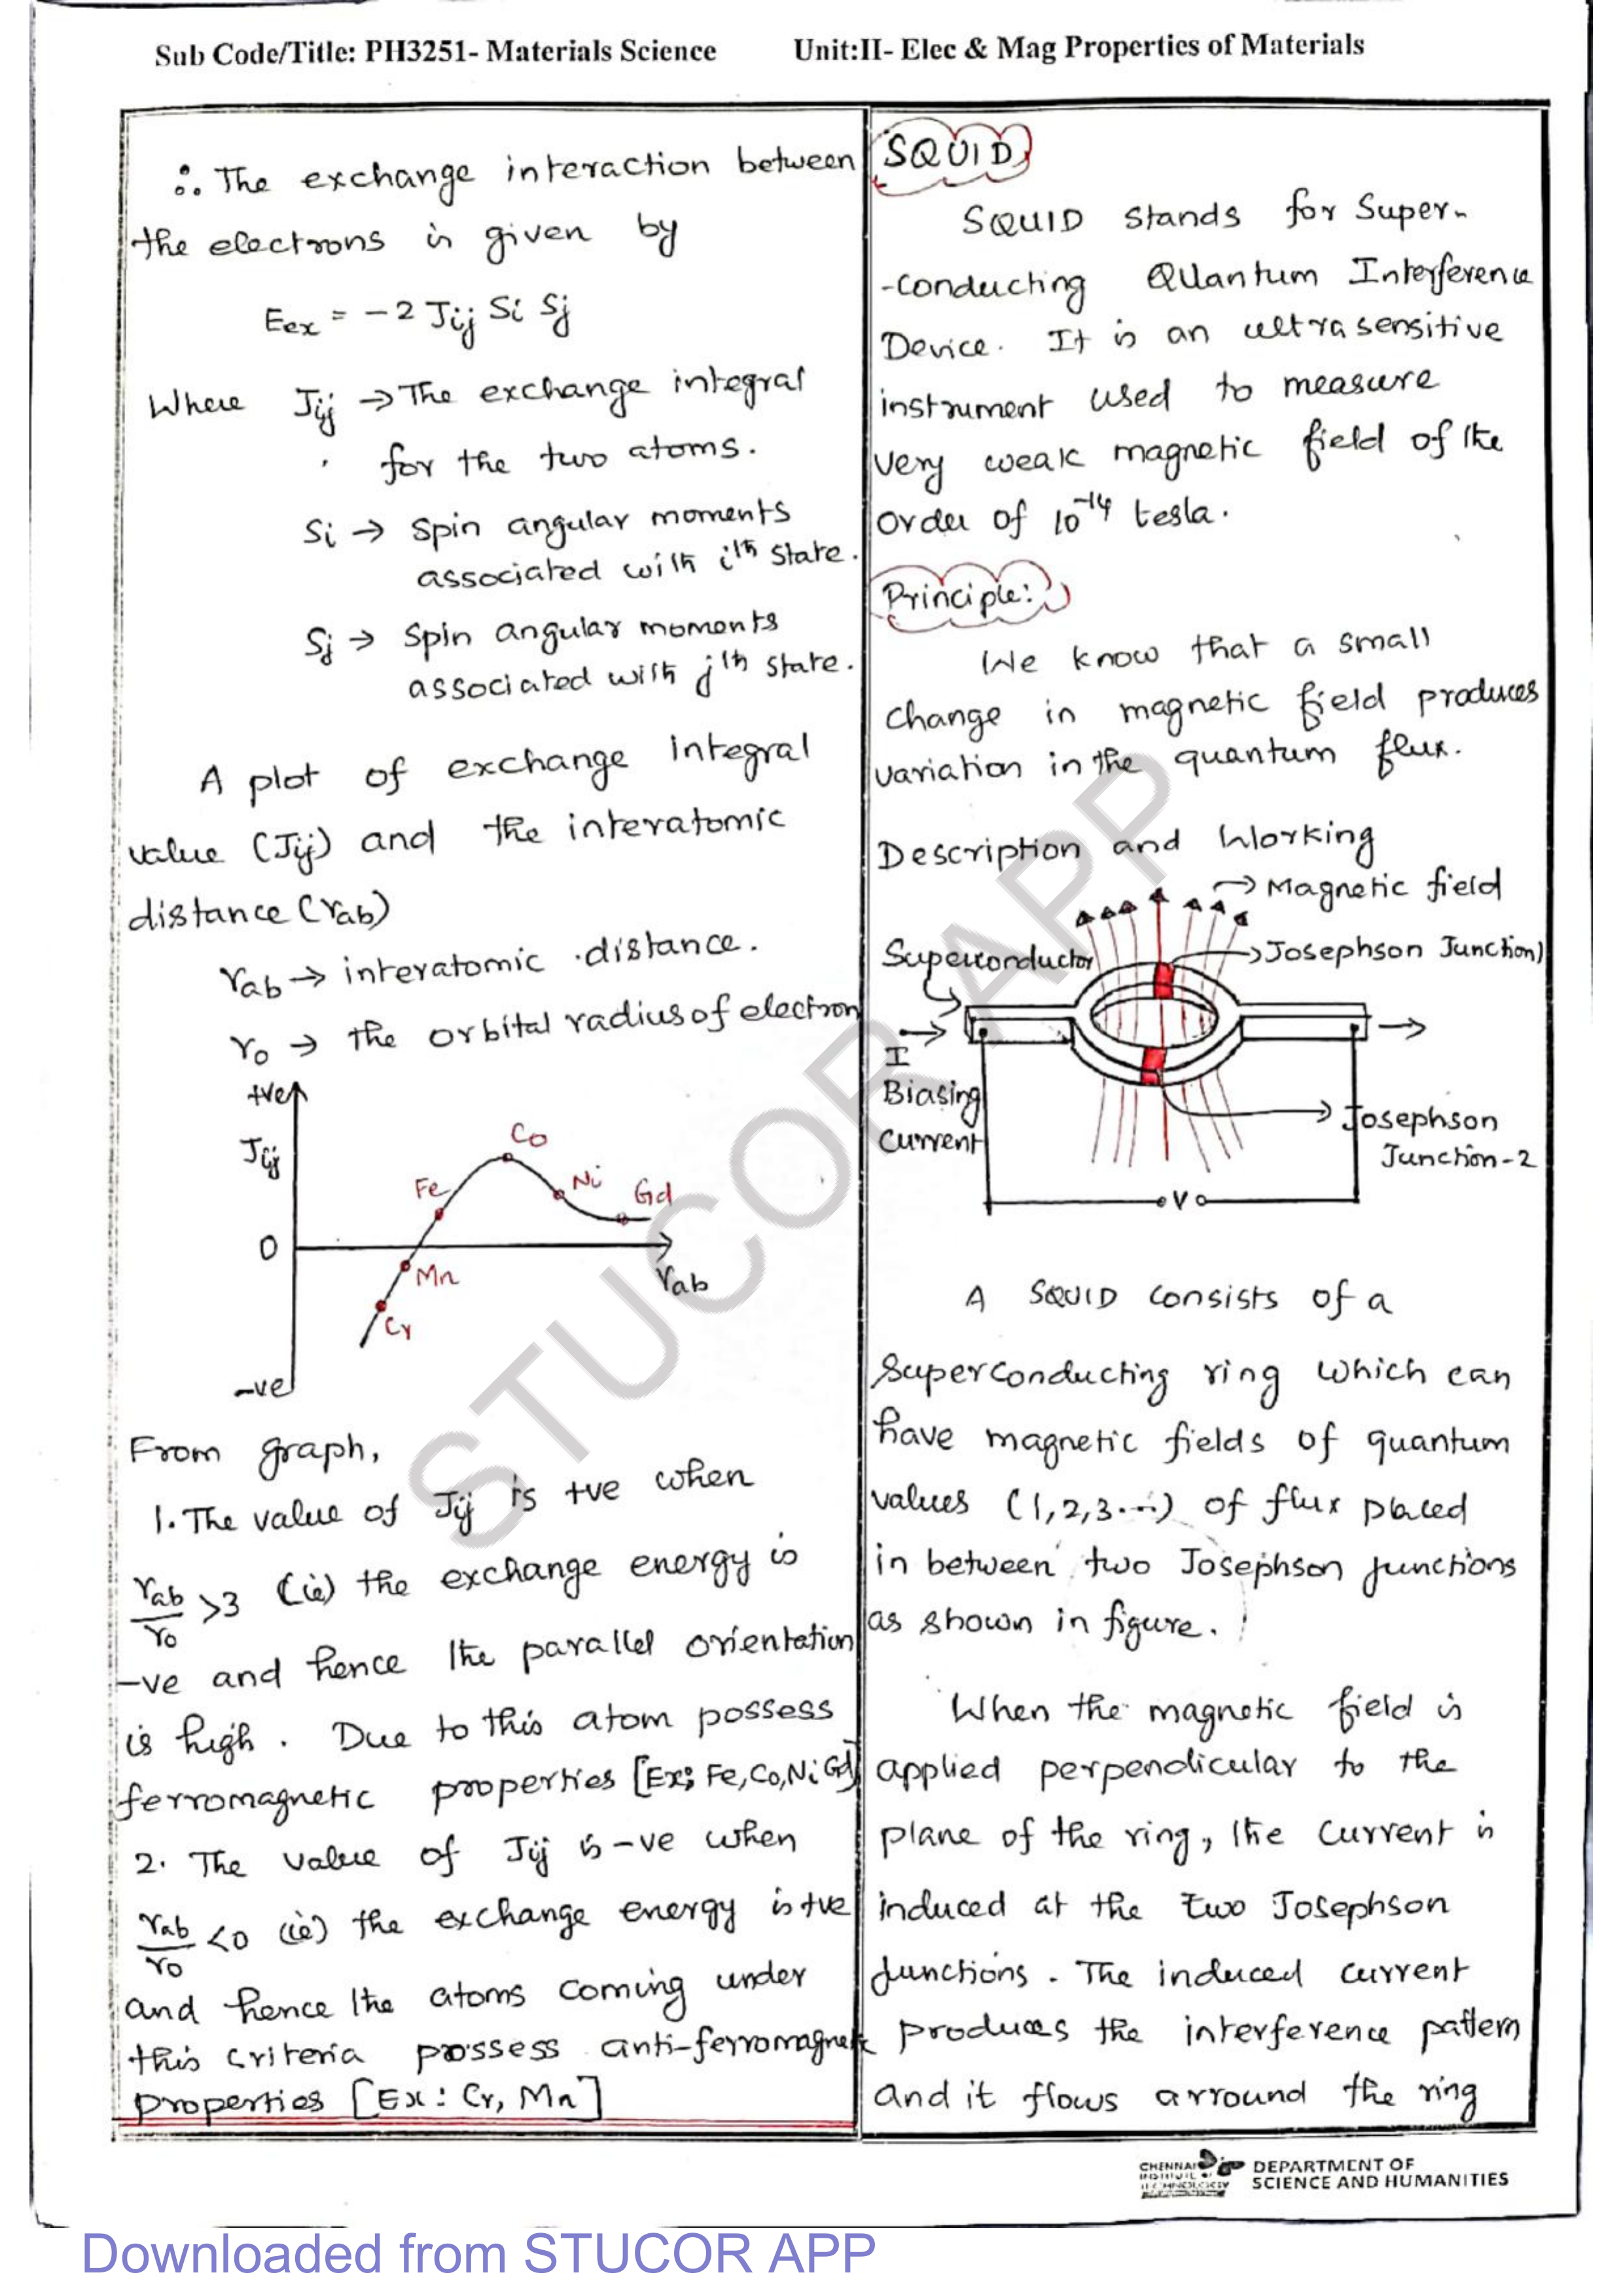 Sub Code/Title: PH3251- Materials Science Unit:II- Elec & Mag Properties of Materials
∴ The exchange interaction between
the electrons is given by
Eex = -2 Jij Si Sj
Where Jij → The exchange integral
for the two atoms.
Si → Spin angular moments
associated with ith state.
Sj → Spin angular moments
associated with jth state.
A plot of exchange integral
value (Jij) and the interatomic
distance (rab)
rab → interatomic distance.
ro → the orbital radius of electron
+ve
Jij
Co
Fe
Ni
Gd
0
Mn
rab
Cr
-ve
From graph,
1. The value of Jij is +ve when
rab/ro >3 (ie) the exchange energy is
-ve and hence the parallel orientation
is high. Due to this atom possess
ferromagnetic properties [Ex; Fe, Co, Ni Gd]
2. The value of Jij is -ve when
rab/ro <0 (ie) the exchange energy is +ve
and hence the atoms coming under
this criteria possess anti-ferromagnetic
properties [Ex: Cr, Mn]
SQUID
SQUID stands for Super-
-conducting QUantum Interference
Device. It is an ultrasensitive
instrument used to measure
very weak magnetic field of the
order of 10^-14 tesla.
Principle:
We know that a small
change in magnetic field produces
variation in the quantum flux.
Description and Working
→ Magnetic field
Superconductor
→ Josephson Junction)
I
Biasing
Current
→ Josephson
Junction-2
V
A SQUID consists of a
Superconducting ring which can
have magnetic fields of quantum
values (1,2,3...) of flux placed
in between two Josephson junctions
as shown in figure.
When the magnetic field is
applied perpendicular to the
plane of the ring, the current is
induced at the two Josephson
junctions. The induced current
produces the interference pattern
and it flows arround the ring
STUCOR APP
CHENNAI
INSTITUTE OF
TECHNOLOGY
DEPARTMENT OF
SCIENCE AND HUMANITIES
Downloaded from STUCOR APP